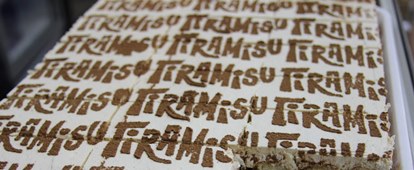 TiRAMiSU TiRAMiSU TiRAMiSU
TiRAMiSU TiRAMiSU TiRAMiSU
TiRAMiSU TiRAMiSU TiRAMiSU
TiRAMiSU TiRAMiSU TiRAMiSU
TiRAMiSU TiRAMiSU TiRAMiSU
TiRAMiSU TiRAMiSU TiRAMiSU